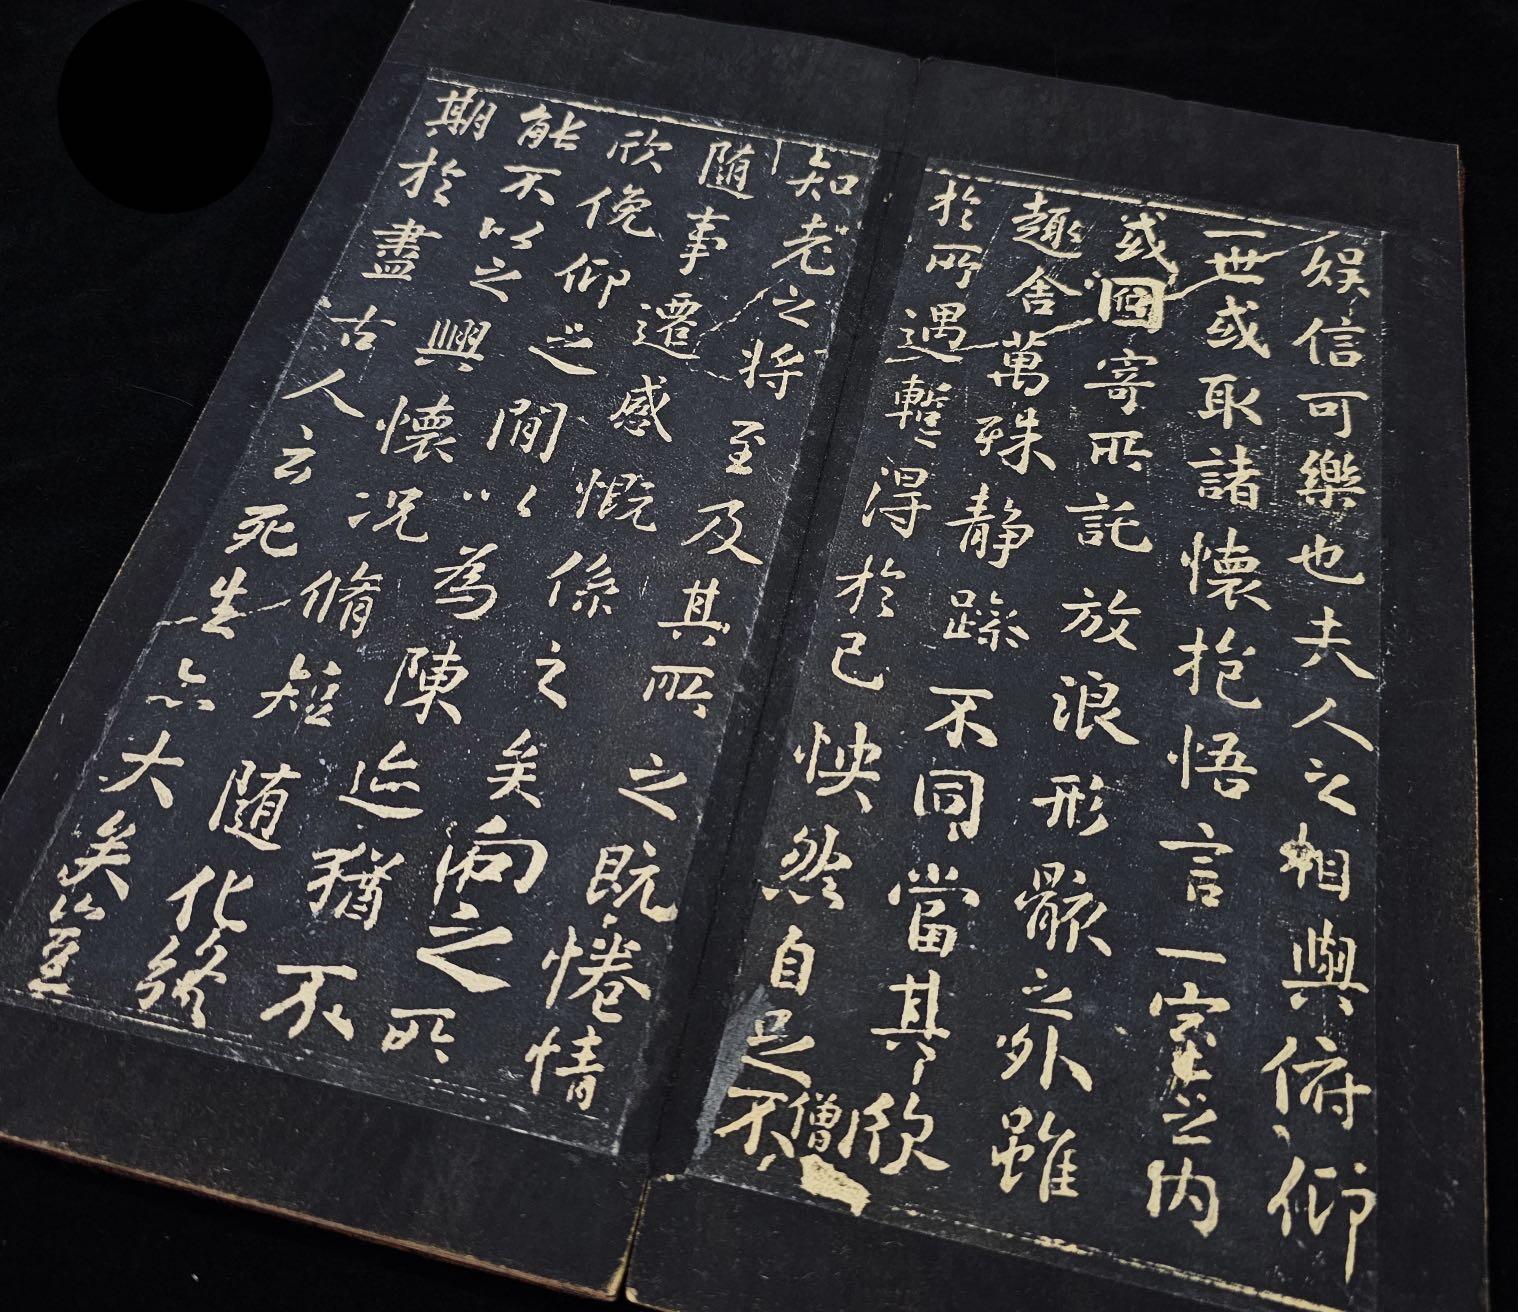 娛信可樂也夫人之相與俯仰
一世或取諸懷抱悟言一室之内
或因寄所託放浪形骸之外雖
趣舍萬殊静躁不同當其欣
僧
於所遇暫得於己怏然自足不
知老之將至及其所之既惓情
随事遷感慨係之矣向之所
欣俛仰之閒以為陳迹猶不
能不以之興懷況脩短随化終
期於盡古人云死生亦大矣豈